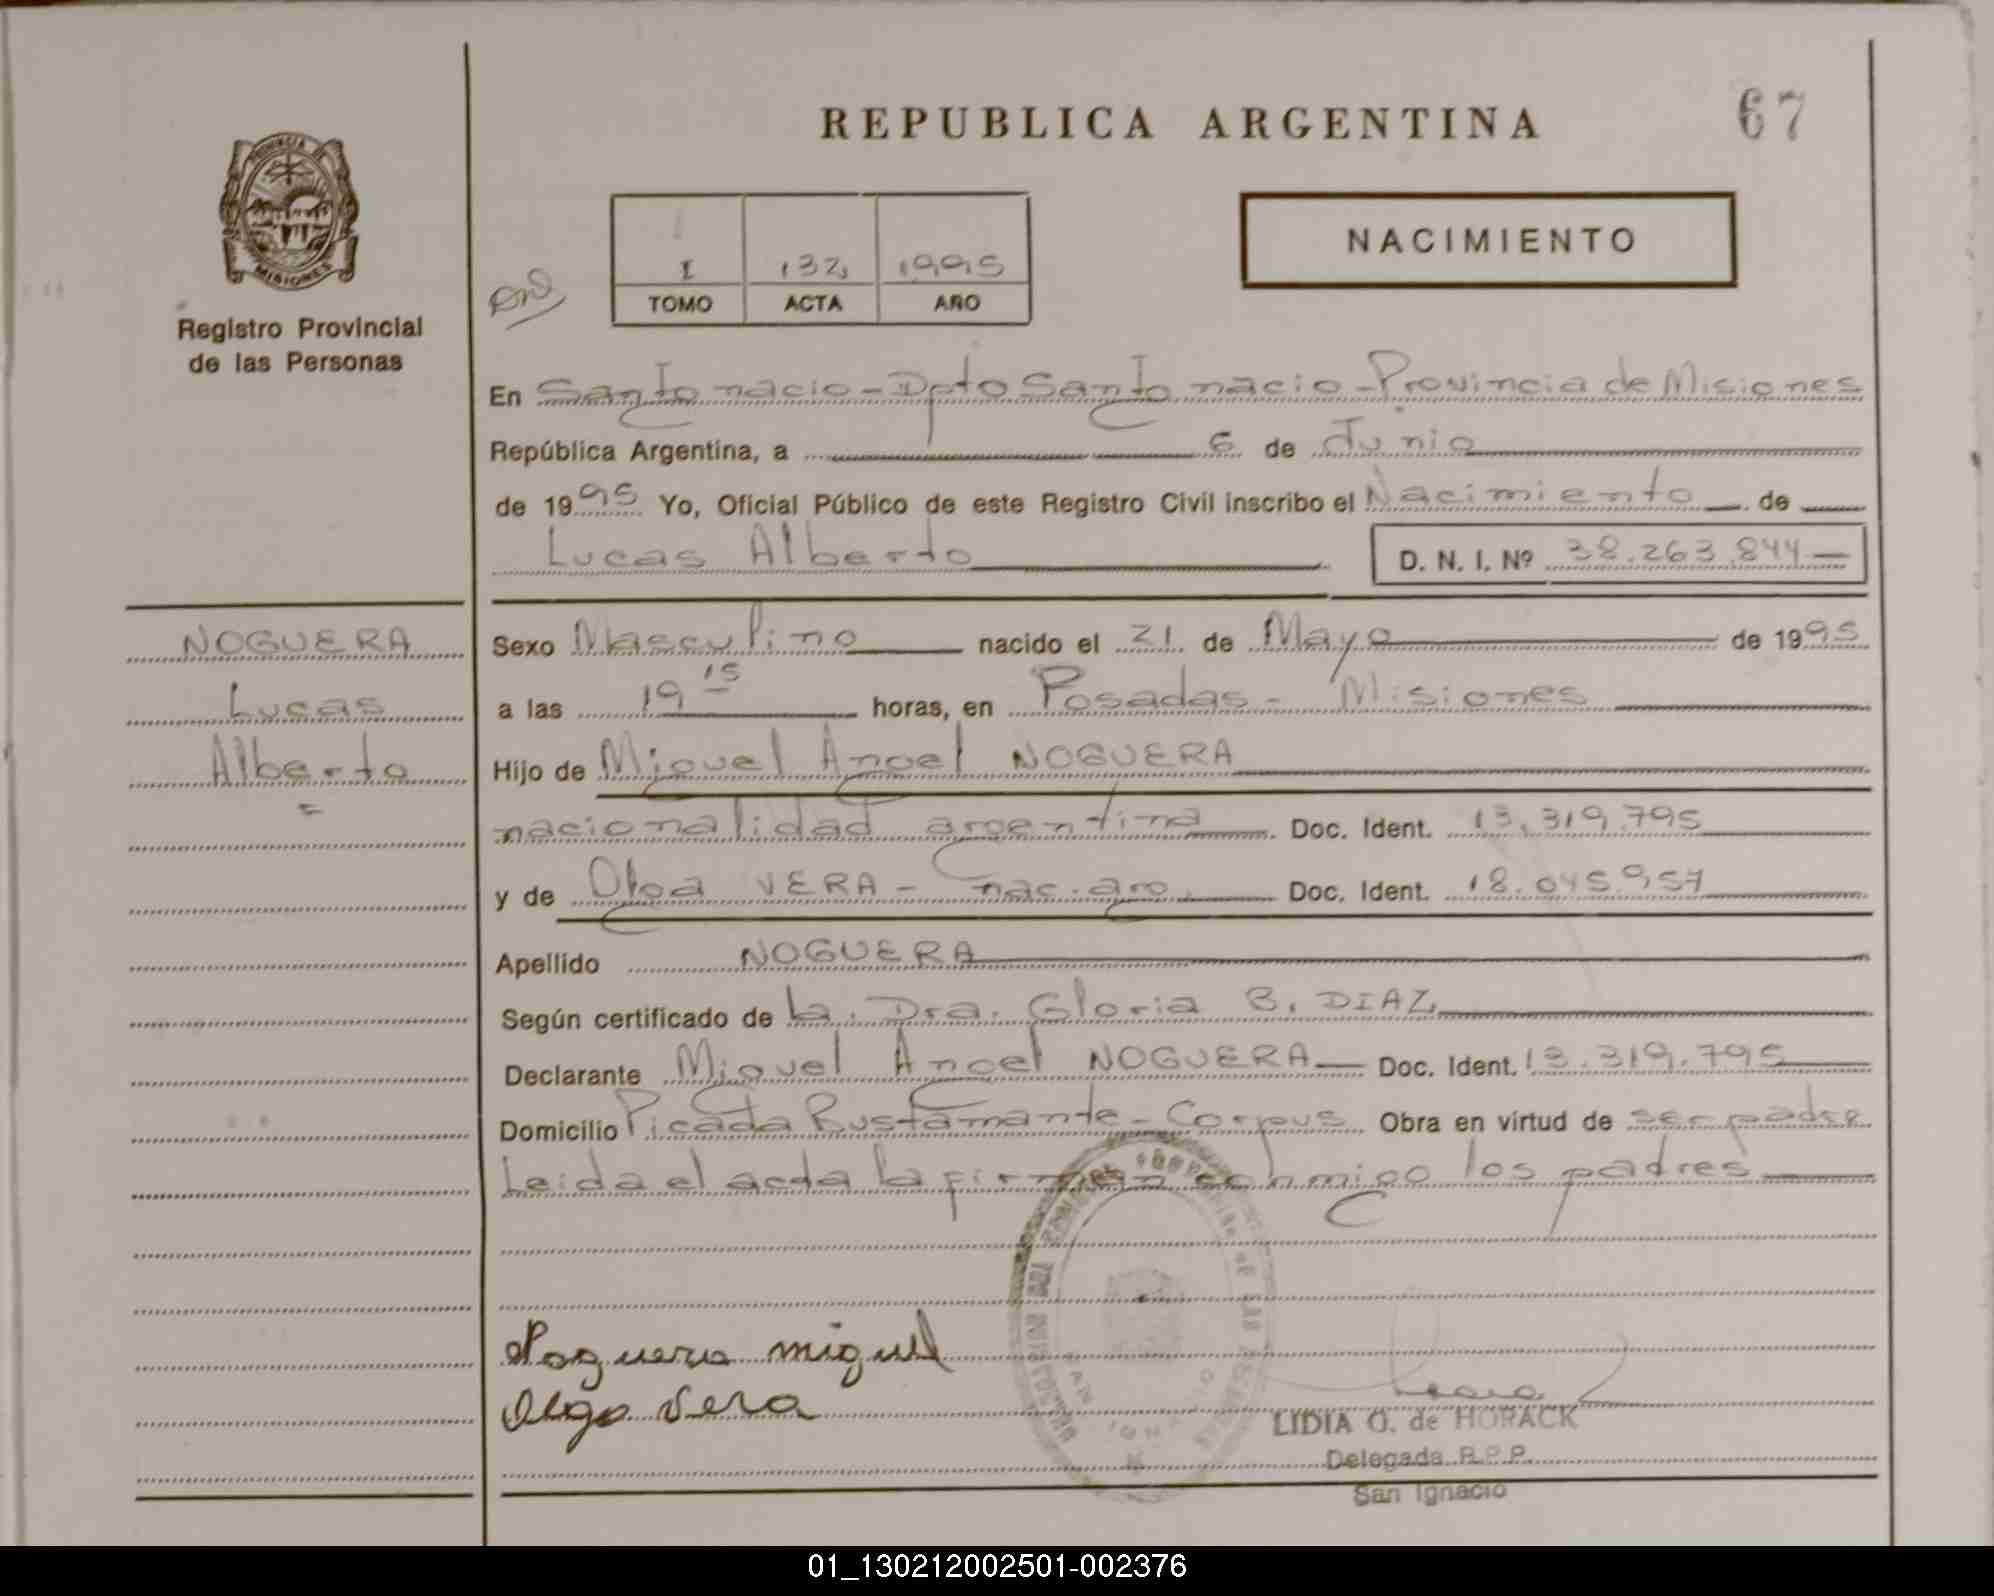 REPUBLICA ARGENTINA
67
PROVINCIA DE
MISIONES
Registro Provincial
de las Personas
I 132 1995
TOMO ACTA AÑO
NACIMIENTO
En San Ignacio - Dpto San Ignacio - Provincia de Misiones
República Argentina, a 6 de Junio
de 1995 Yo, Oficial Público de este Registro Civil inscribo el Nacimiento de
Lucas Alberto D. N. I. Nº 38.263.844
NOGUERA
Lucas
Alberto
Sexo Masculino nacido el 21 de Mayo de 1995
a las 19 15 horas, en Posadas - Misiones
Hijo de Miguel Angel NOGUERA
nacionalidad argentina Doc. Ident. 13.319.795
y de Olga VERA - nac. arg. Doc. Ident. 18.045.957
Apellido NOGUERA
Según certificado de la Dra. Gloria B. DIAZ
Declarante Miguel Angel NOGUERA Doc. Ident. 13.319.795
Domicilio Picada Bustamante - Corpus Obra en virtud de ser padre
Leida el acta la firman conmigo los padres
Noguera miguel
Olga Vera
LIDIA O. de HORACK
Delegada R.P.P.
San Ignacio
01_130212002501-002376